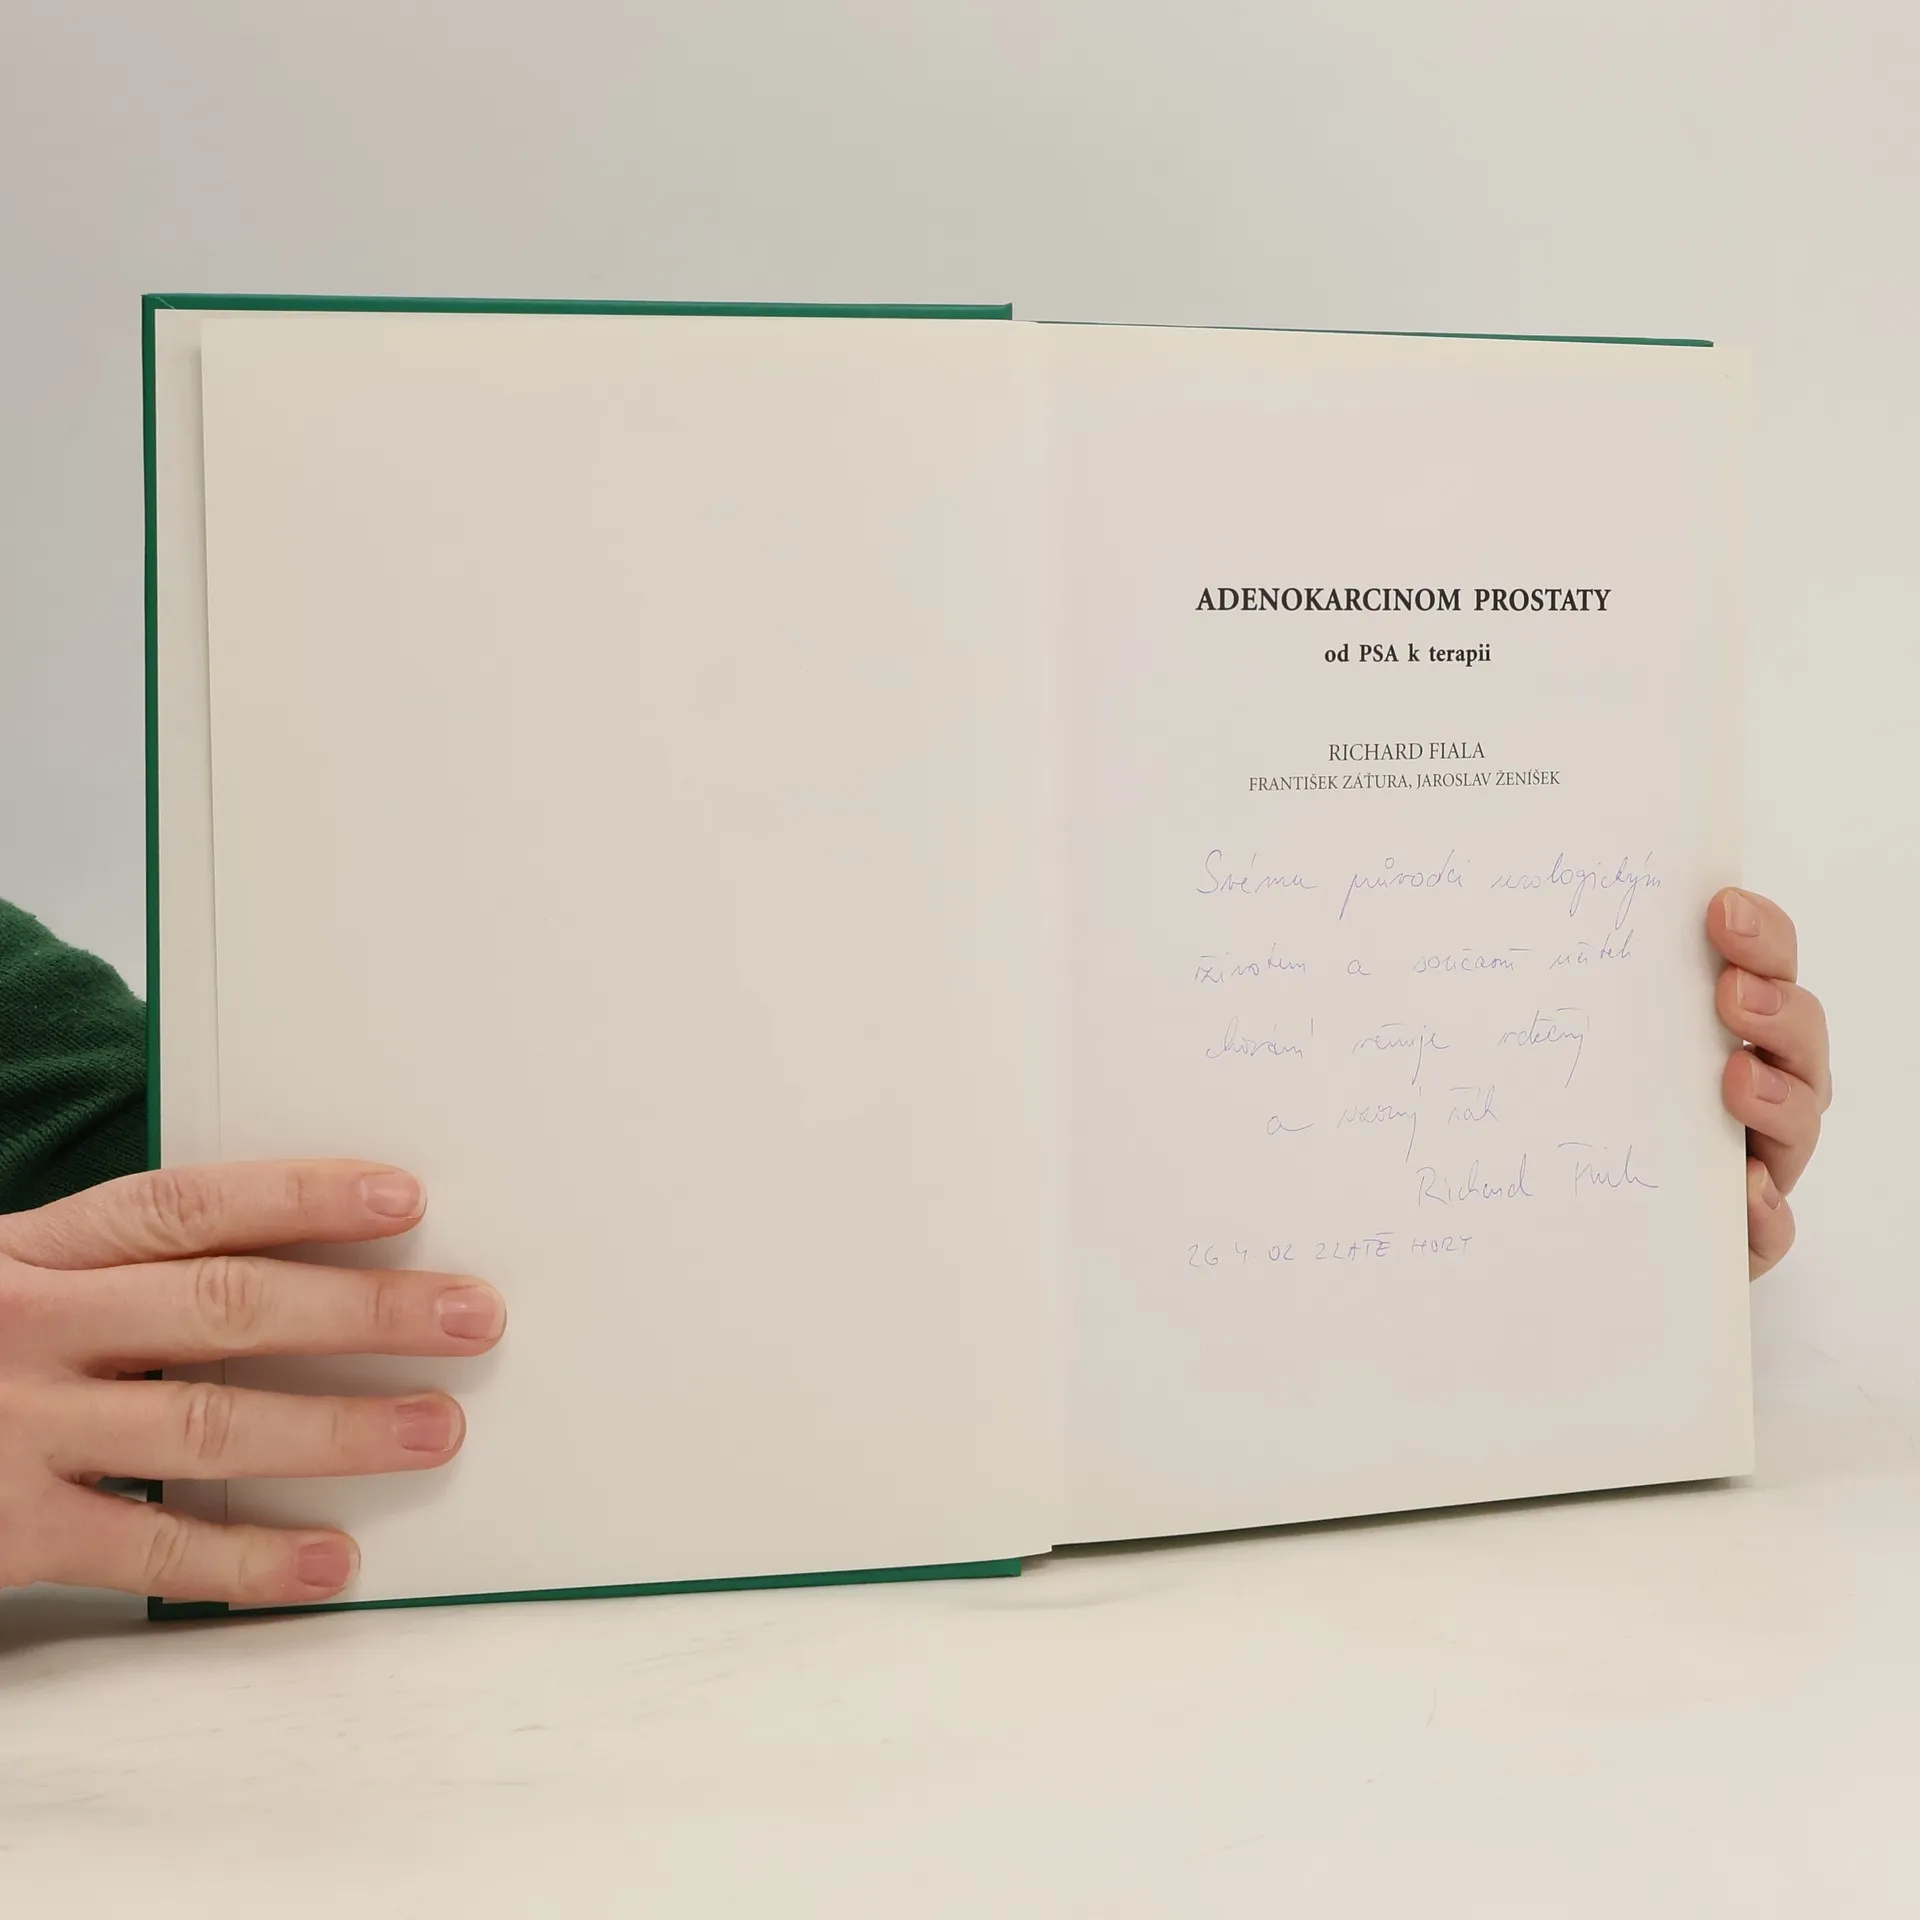 ADENOKARCINOM PROSTATY
od PSA k terapii
RICHARD FIALA
FRANTIŠEK ZÁŤURA, JAROSLAV ŽENÍŠEK
Svému průvodci urologickým
životem a současně učiteli
chování věnuje vděčný
a žák
Richard Fiala
26 4. 02 ZLATÉ HORY